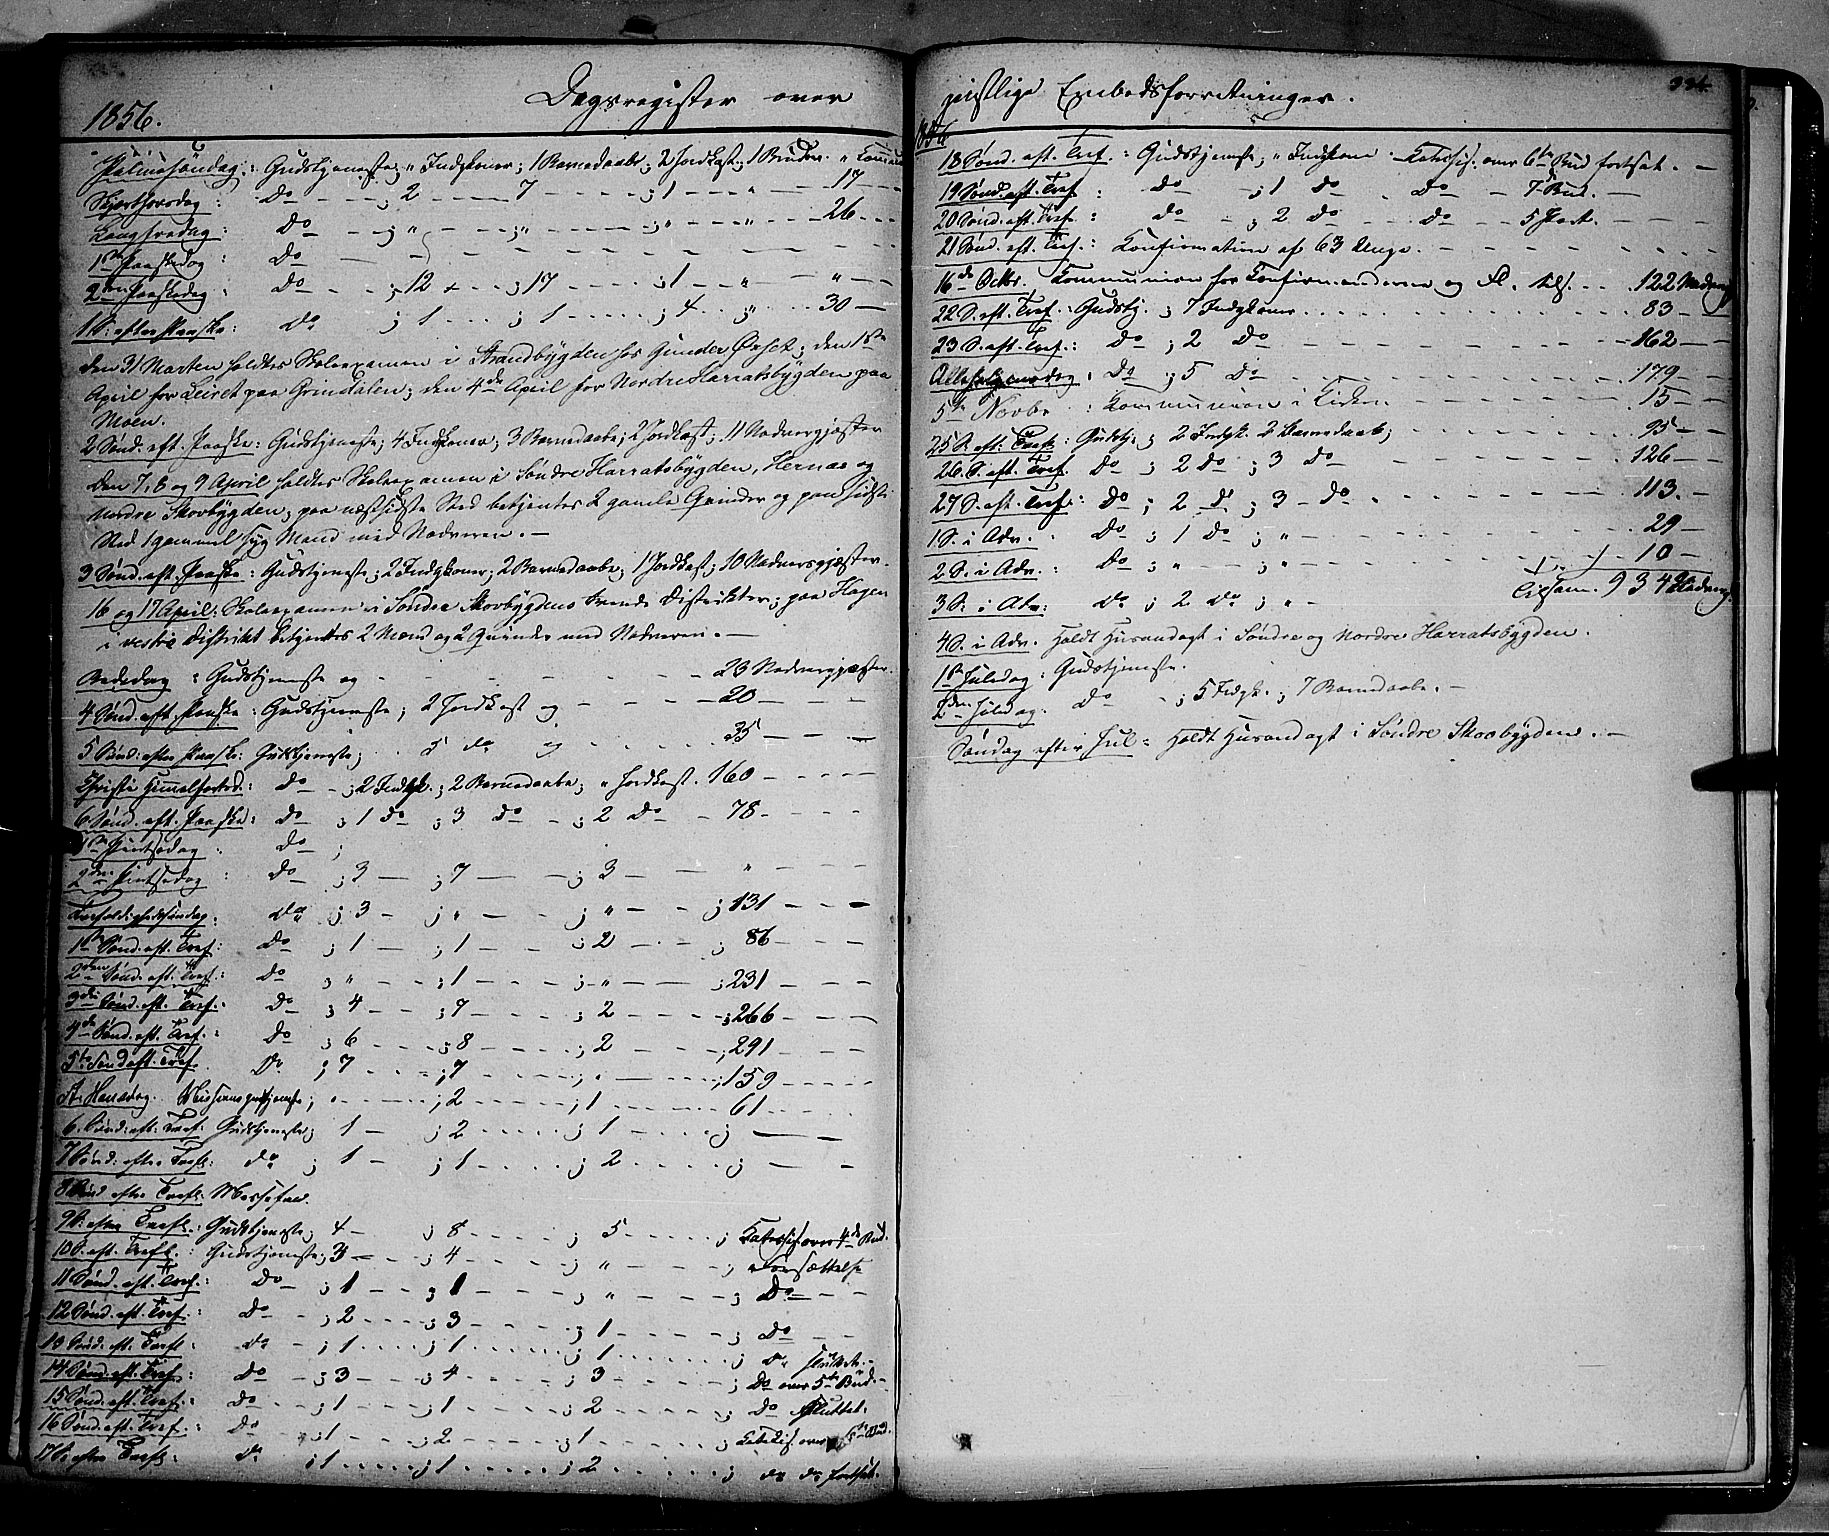 1856.
Dagsregister over
Palmesöndag: Gudstjeneste; " Indgkoner; 1 Barnedaab; 2 Jordkast; 1 Brudev.
Skjærthorsdag: Do - ; 2 - 7 - ; 1 - " - 17 -
Langfredag: Do - ; " - ; " - ; " " 26 -
1ste Paaskedag: Do -
2den Paaskedag: Do - ; 12 - ; 17 - ; 1 - " - " -
1 S. efter Paaske: Do ; 1 - ; 1 - ; 4 - " - 30 -
den 31 Marten holdtes Skoleexamen i Strandbygden hos Gunder Öyset; den 1ste
April for Leiret paa Grindalen; den 4de April for Nordre Harratsbygden paa
Moen.
2 Sönd. eft. Paaske: Gudstjeneste; 4 Indgkoner; 3 Barnedaab; 2 Jordkast; 11 Nadvergjæster
den 7, 8 og 9 April holdtes Skoleexamen i Söndre Harratsbygden, Hernæs og
Nordre Skovbygden; paa næstsidste Sted betjentes 2 gamle Qvinder og paa sidste
Sted 1 gammel syg Mand med Nadveren. -
3 Sönd. eft. Paaske: Gudstjeneste; 2 Indgkoner; 2 Barnedaab; 1 Jordkast; 10 Nadvergjæster.
16 og 17 April: Skoleexamen i Söndre Skovbygdens tvende Distrikter; paa Hagen
i vestre Distrikt betjentes 2 Mænd og 2 Qvinder med Nadveren. -
Bededag: Gudstjeneste og - 23 Nadvergjæster.
4 Sönd. eft. Paaske: Gudstjeneste; 2 Jordkast og - 20 -
5 Sönd: efter Paaske: Gudstjeneste; 5 do og - 35 -
Christi Himmelfartsd: Do - ; 2 Indgk.; 2 Barnedaab; " Jordkast. 160 -
6 Sönd. eft. Paaske: Do ; 1 do ; 3 do - ; 2 Do - 78 -
1ste Pintsedag: Do ;
2den Pintsedag: Do - ; 3 - ; 7 - ; 3 - " -
Trefoldighedssöndag: do - ; 3 - ; " - ; " - ; 131 -
1ste Sönd. eft. Tref: Do ; 1 - ; 1 - ; 2 - ; 86 -
2den Sönd. eft. Tref.: Do ; " - ; 1 - ; " - ; 231 -
3die Sönd. eft. Tref.: Do ; 4 - ; 7 - ; 2 - ; 266 -
4de Sönd. eft. Tref.: Do ; 6 - ; 8 - ; 2 - ; 291 -
5te Sönd eft. Tref. Do ; 7 - ; 7 - ; " - ; 159 -
St. Hansdag. Missionsgudstjeneste; " - ; 2 - ; 1 - 61 -
6. Sönd: eft: Tref: Gudstjeneste; 1 - ; 2 - ; 1 - ; -
7 Sönd: efter Trefl: do ; 1 - ; 1 - ; 2 - ; -
8 Sönd efter Trefl. Messefald.
9 S. efter Trefl: Gudstjeneste; 4 - ; 8 - ; 5 - ; Katechis. over 4de Bud.
10 S. eft. Trefl.: Gudstjeneste; 3 - ; 4 - ; " - ; Forsættelse
11 Sönd. eft. Tref.: Do - ; 1 - ; 1 - ; " - ; Do -
12 Sönd. eft. Tref.: Do - ; 2 - ; 3 - ; 1 - ; Do -
13 Sönd: eft. Trefl: do - ; 1 - ; 1 - ; 1 - ; do sluttet -
14 Sönd. eft. Tref.: Do - ; 3 - ; 4 - ; 3 - ; Do over 5te Bud. -
15 Sönd. eft. Tref.: Do - ; 1 - ; 1 - ; 2 - ; Do sluttet.
16 Sönd. eft. Tref.: Do - ; 1 - ; 2 - ; 1 - ; Katekis. over 6te Bud.
17 S. efter Trefl: do ; 1 - ; 1 - ; 2 - ; do do fortsat.
geistlige Embedsforretninger.
334
1856
18 Sönd. eft. Tref.: Gudstjeneste; " Indgkone - Katechis. over 6te Bud fortsat. -
19 Sönd. eft. Tref: do - ; 1 do Do - 7 Bud. -
20 Sönd. eft. Tref: do - ; 2 do - do - 5 Part. -
21 Sönd. eft. Tref.: Konfirmation af 63 Unge. -
16de Octbr. Kommunion for Konfirmanderne og Fl. tils. - 122 Nadverg
22 S. eft. Tref.: Gudstj. ; 7 Indgkoner - 83 -
23 S. eft. Tref.: Do ; 2 Do - 162 -
Allehelgensdag: Do ; 5 Do - 179 -
5te Novbr: Kommunion i Kirken - 15 -
25 S. eft. Trefl: Gudstj ; 2 Indgk. 2 Barnedaab; - 95 -
26 S. eft. Tref. Do ; 2 Do ; 3 Do - 126 -
27 S. eft. Tref.: Do ; 2 Do ; 3 - Do - 113. -
1 S. i Adv.: Do ; 1 Do ; " - 29 -
2 S. i Adv.: Do ; " - ; " - 10 -
3 S. i Adv: do ; 2 do ; " - Tilsam. 934 Nadverg.
4 S. i Adv. Holdt Husandagt i Söndre og Nordre Harratsbygden.
1ste Juledag: Gudstjeneste.
2den Juledag. Do - ; 5 Indgk.; 7 Barnedaab. -
Söndag efter Jul: Holdt Husandagt i Söndre Skovbygden. -